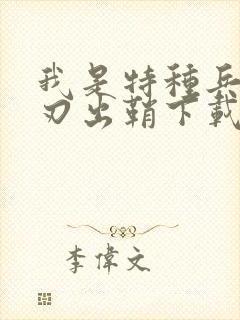 我是特種兵
刃出鞘下載
李偉文